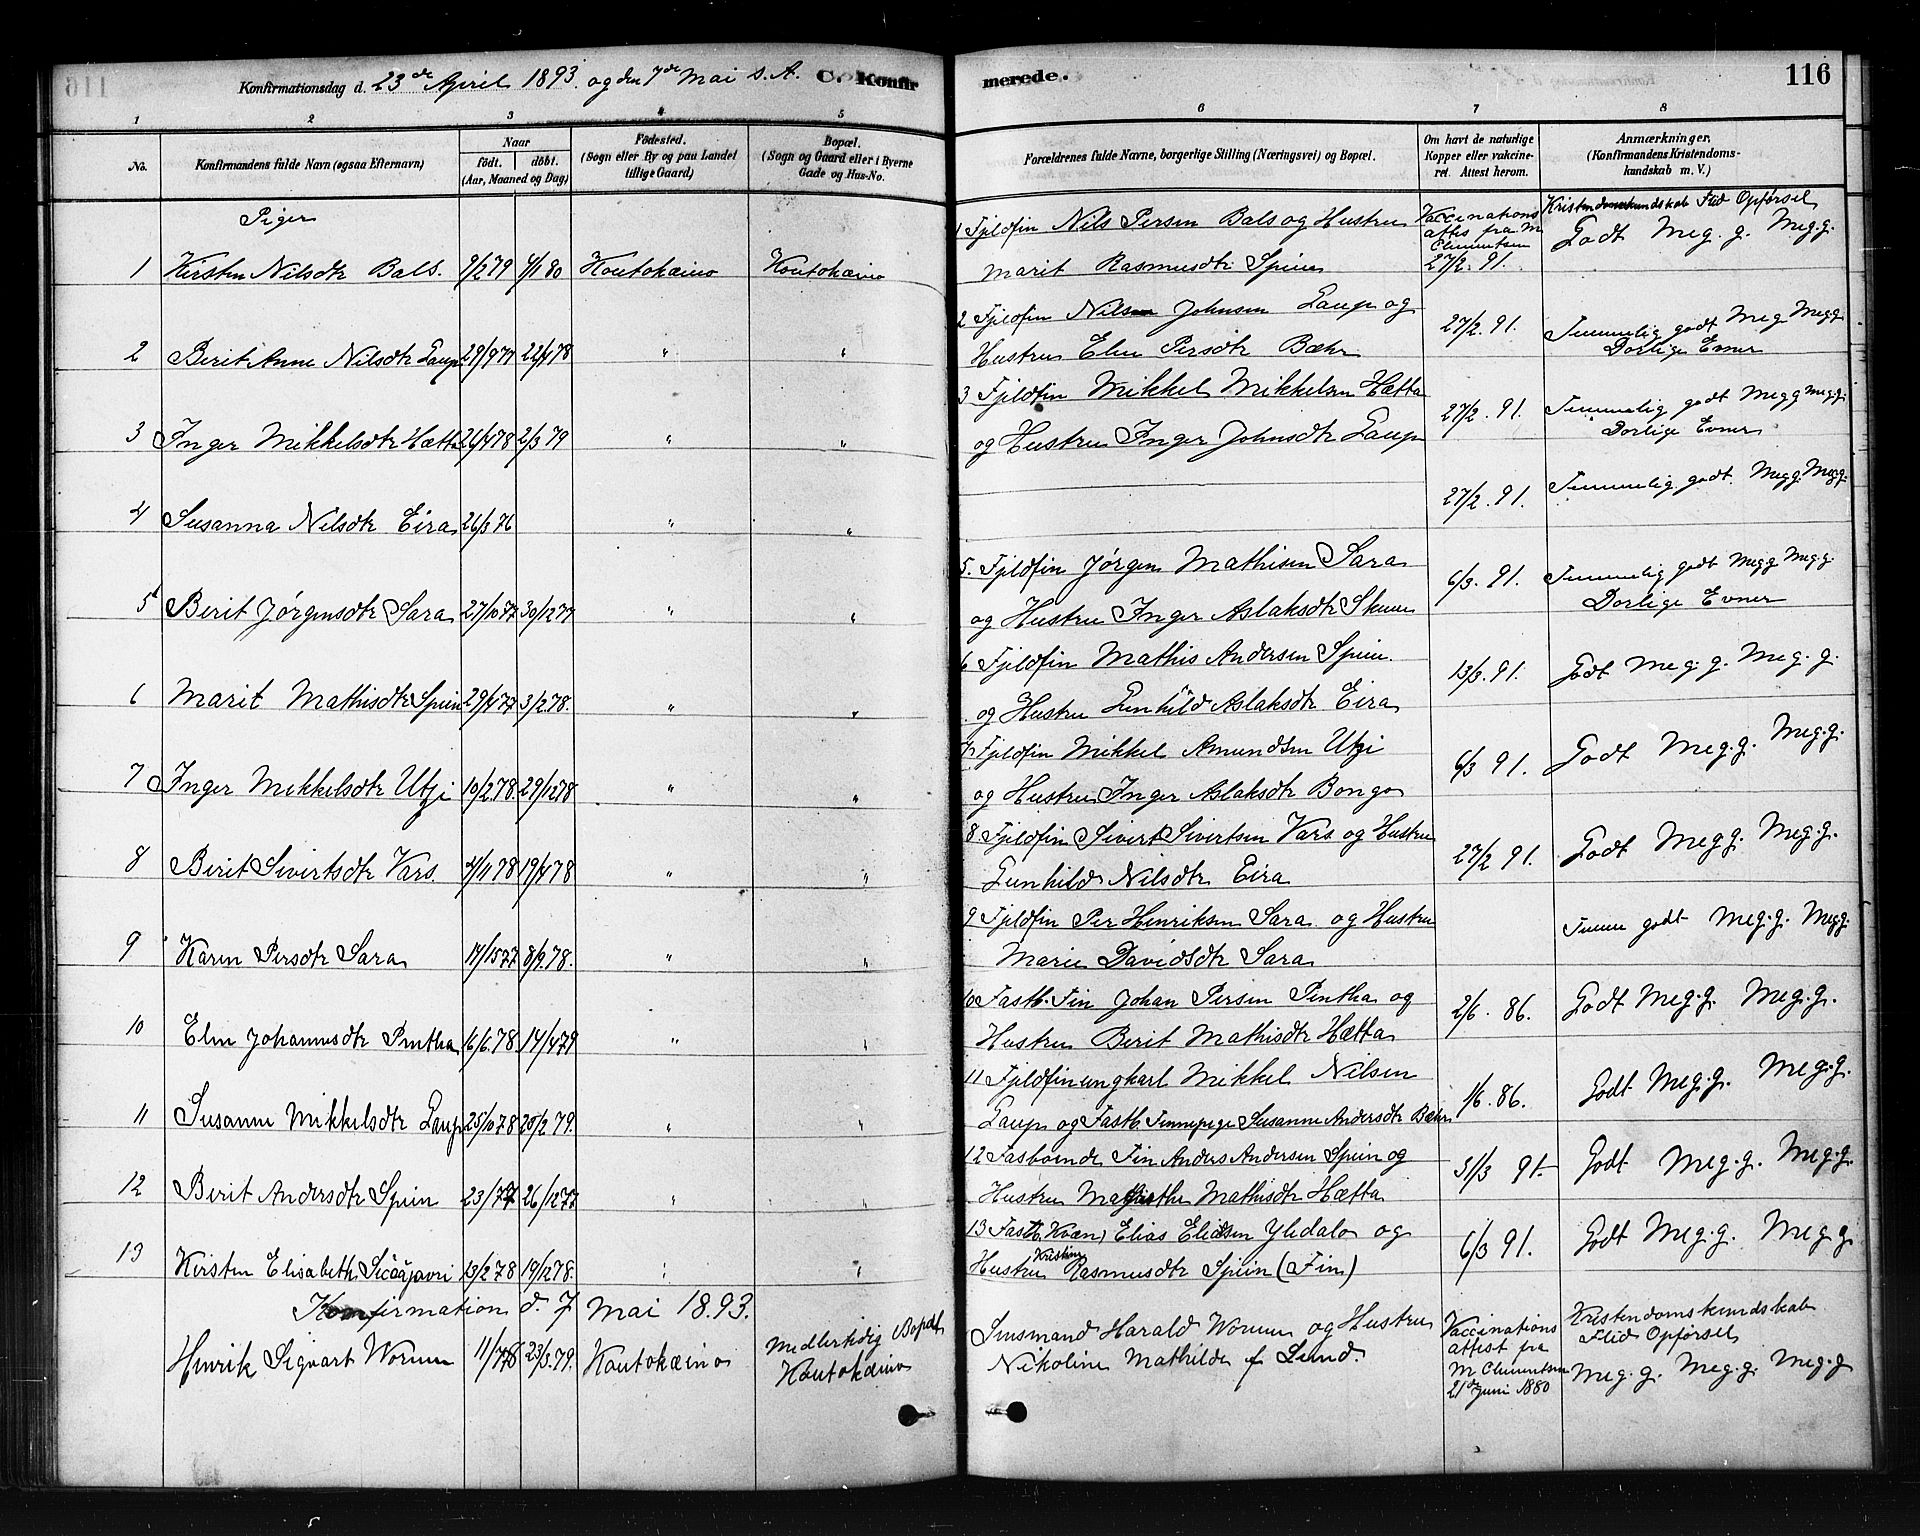 116
Konfirmationsdag d. 23de April 1893. og den 7de Mai s. A. C. Konfirmerede. 116
1 2 3 4 5 6 7 8
No. Konfirmandens fulde Navn (ogsaa Efternavn) Naar födt. döbt. (Aar, Maaned og Dag) Födested. (Sogn eller By og paa Landet tillige Gaard.) Bopæl. (Sogn og Gaard eller i Byerne Gade og Hus-No. Forældrenes fulde Navne, borgerlige Stilling (Næringsvei) og Bopæl. Om havt de naturlige Kopper eller vakcineret. Attest herom. Anmærkninger, (Konfirmandens Kristendomskundskab m. V.)
Piger
Kristendomskundskab Flid Opførsel
1 Kirsten Nilsdtr Bals. 9/2 79 4/1 80 Koutokæino Koutokæino 1 Fjeldfin Nils Persen Bals og Hustru Marit Rasmusdtr Spein Vaccinations attes fra M Clementsen 27/2. 91. Godt Meg. g. Meg.g.
2 Berit Anne Nilsdtr Gaup 29/9 77 22/4 78 " " 2 Fjeldfin Nils Johnsen Gaup og Hustru Elen Persdtr Bæhr 27/2. 91. Temmelig godt Meg Megg. Dorlige Evner
3 Inger Mikkelsdtr Hætta 26/4 78 2/3 79 " " 3 Fjeldfin Mikkel Mikkelsen Hætta og Hustru Inger Johnsdtr Gaup 27/2. 91. Temmelig godt Megg Meg.g. Dorlige Evner
4 Susanna Nilsdtr Eira 26/3 76 " " 27/2. 91. Temmelig godt. Megg. Megg.
5 Berit Jørgensdtr Sara 27/10 77 30/12 77 " " 5. Fjeldfin Jørgen Mathisen Sara og Hustru Inger Aslaksdtr Skum 6/3. 91. Temmelig godt Megg Meg.g. Dorlige Evner
6 Marit Mathisdtr Spein 29/4 77 3/2 78. " " 6 Fjeldfin Mathis Andersen Spein. og Hustru Gunhild Aslaksdtr Eira 13/3. 91. Godt Meg. g. Meg. g.
7 Inger Mikkelsdtr Utzi 10/2 78. 29/12 78 " " 7 Fjeldfin Mikkel Amundsen Utzi og Hustru Inger Aslaksdtr Bongo 6/3 91. Godt Meg.g. Meg.g.
8 Berit Sivertsdtr Vars. 4/11 78 19/4 78 " " 8 Fjeldfin Sivert Sivertsen Vars og Hustru Gunhild Nilsdtr Eira 27/2 91. Godt Megg. Meg.g.
9 Karen Persdtr Sara 8/9. 78. " " 9 Fjeldfin Per Henriksen Sara og Hustru Marie Davidsdtr Sara Temm godt Meg.g. Megg.
10 Elen Johannesdtr Pentha 16/6. 78. 14/4 79 " " 10 Fastb. Fin Johan Persen Pentha og Hustru Berit Mathisdtr Hætta 2/6. 86. Godt Meg.g. Meg.g.
11 Susanne Mikkelsdtr Gaup 25/10 78 20/2 79. " " 11 Fjeldfinungkarl Mikkel Nilsen Gaup og Fastb. Finnepige Susanne Andersdtr Bæhr 1/6. 86. Godt Meg.g. Meg.g.
12 Berit Andersdtr Spein 26/12 77 " " 12 Fasboende Fin Anders Andersen Spein og Hustru Marthe Mathisdtr Hætta 31/3 91. Godt Meg.g. Meg.g.
13 Kirsten Elisabeth Siccajavri 13/2 78 19/12 78. " " 13 Fastb. Kvæn Elias Eliasen Ylidalo og Hustru Kristine Rasmusdtr Spein (Fin) 6/3 91. Godt Meg.g. Meg g
Konfirmation d. 7 Mai 1893.
Henrik Sigvart Worum 23/3. 79. Koutokæino Midlertidig Bopæl Koutokæino Lensmand Harald Worum og Hustru Nikoline Mathilde f Lund. Vaccinations attest fra M Clementsen 21de Juni 1880 Kristendomskundskab Flid Opførsel Meg. g. Meg.g. Meg.g